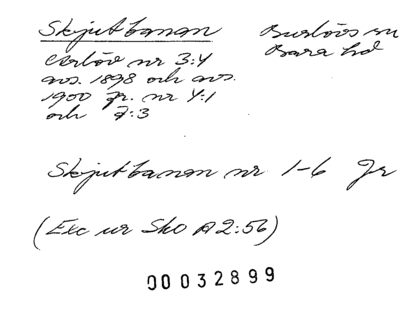 Skjutbanan
Burlövs sn
Bara hd
Arlöv nr 3:4
avs. 1898 och avs.
1900 fr. nr 4:1
och 7:3
Skjutbanan nr 1-6 Jr
(Exc ur SkO A2:56)
00032899